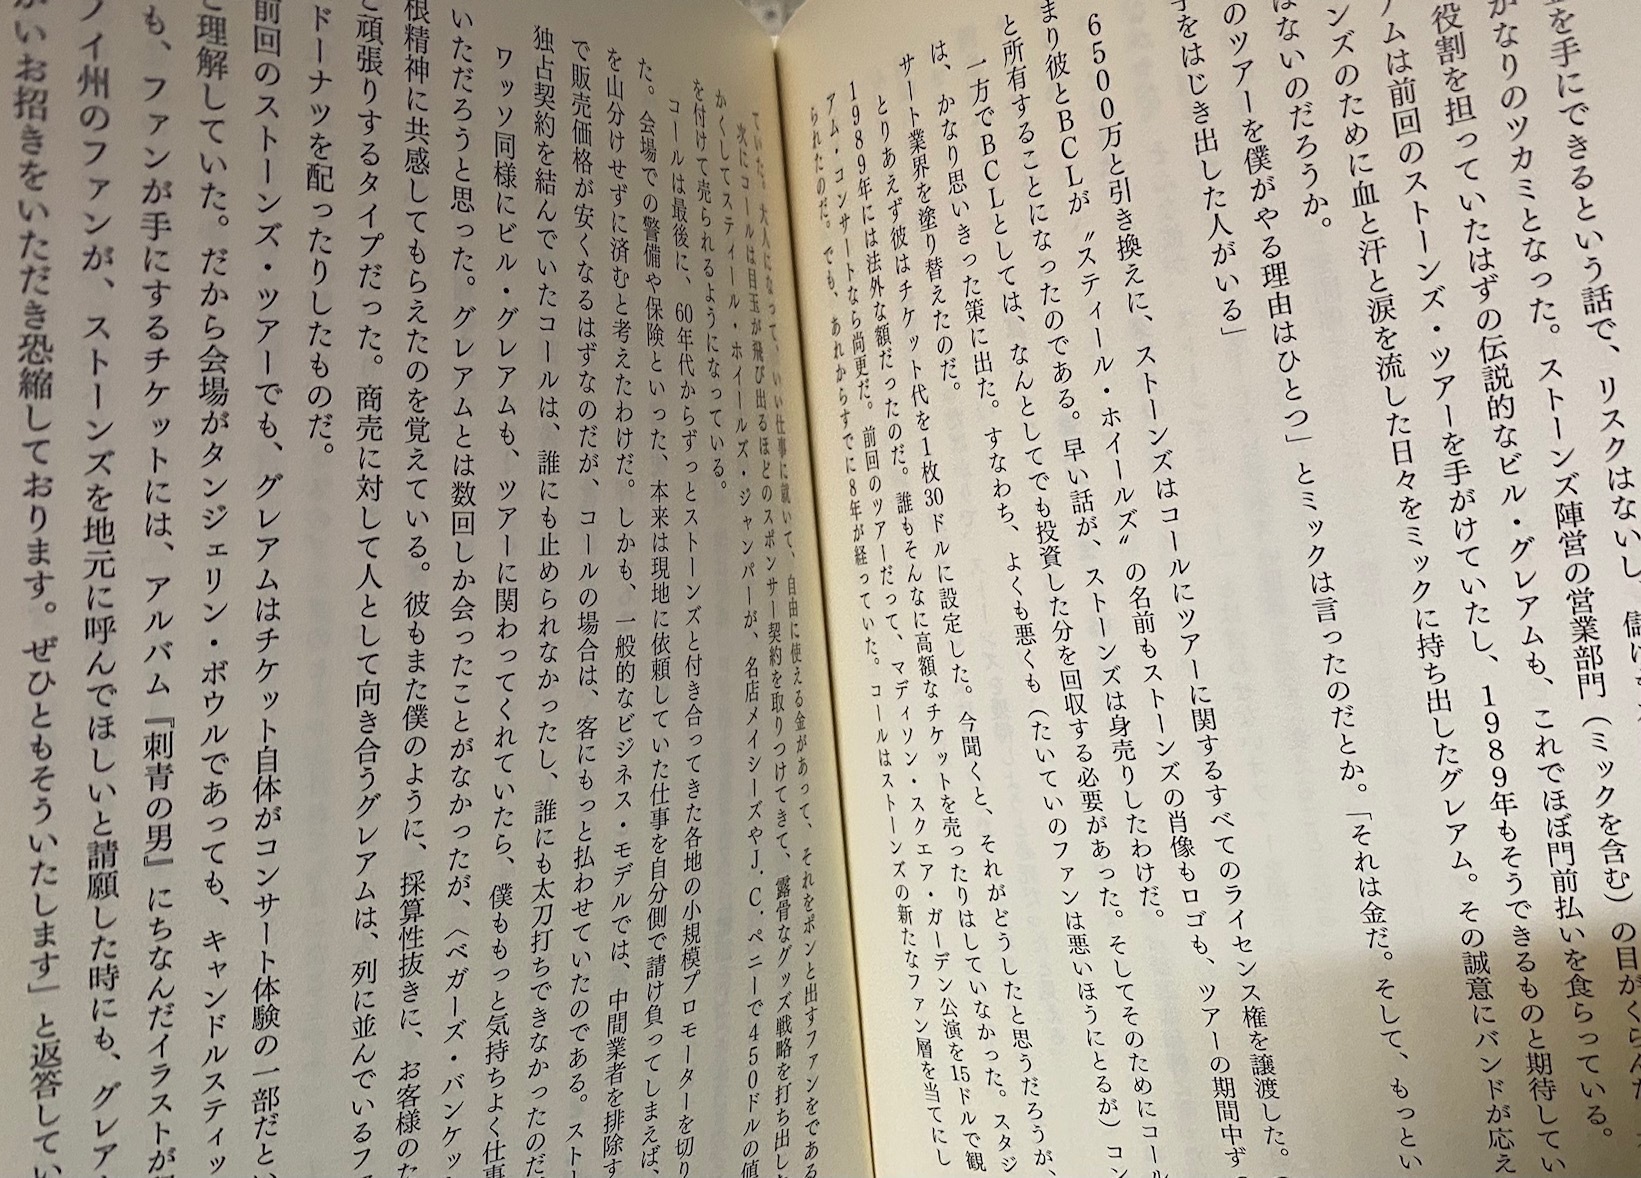 を手にできるという話で、リスクはないし、儲け
かなりのツカミとなった。ストーンズ陣営の営業部門（ミックを含む）の目がくらんだ
役割を担っていたはずの伝説的なビル・グレアムも、これでほぼ門前払いを食らっている。
アムは前回のストーンズ・ツアーを手がけていたし、1989年もそうできるものと期待してい
ンズのために血と汗と涙を流した日々をミックに持ち出したグレアム。その誠意にバンドが応え
はないのだろうか。
のツアーを僕がやる理由はひとつ」とミックは言ったのだとか。「それは金だ。そして、もっとい
手をはじき出した人がいる」
6500万と引き換えに、ストーンズはコールにツアーに関するすべてのライセンス権を譲渡した。
まり彼とBCLが〝スティール・ホイールズ〟の名前もストーンズの肖像もロゴも、ツアーの期間中ず
と所有することになったのである。早い話が、ストーンズは身売りしたわけだ。
一方でBCLとしては、なんとしてでも投資した分を回収する必要があった。そしてそのためにコール
は、かなり思いきった策に出た。すなわち、よくも悪くも（たいていのファンは悪いほうにとるが）コン
サート業界を塗り替えたのだ。
とりあえず彼はチケット代を1枚30ドルに設定した。今聞くと、それがどうしたと思うだろうが、
1989年には法外な額だったのだ。誰もそんなに高額なチケットを売ったりはしていなかった。スタジ
アム・コンサートなら尚更だ。前回のツアーだって、マディソン・スクエア・ガーデン公演を15ドルで観
られたのだ。でも、あれからすでに8年が経っていた。コールはストーンズの新たなファン層を当てにし
ていた。大人になって、いい仕事に就いて、自由に使える金があって、それをポンと出すファンをである
次にコールは目玉が飛び出るほどのスポンサー契約を取りつけてきて、露骨なグッズ戦略を打ち出し
かくしてスティール・ホイールズ・ジャンパーが、名店メイシーズやJ.C.ペニーで450ドルの値
を付けて売られるようになっている。
コールは最後に、60年代からずっとストーンズと付き合ってきた各地の小規模プロモーターを切り
た。会場での警備や保険といった、本来は現地に依頼していた仕事を自分側で請け負ってしまえば、
を山分けせずに済むと考えたわけだ。しかも、一般的なビジネス・モデルでは、中間業者を排除す
で販売価格が安くなるはずなのだが、コールの場合は、客にもっと払わせていたのである。スト
独占契約を結んでいたコールは、誰にも止められなかったし、誰にも太刀打ちできなかったのだ
ワッソ同様にビル・グレアムも、ツアーに関わってくれていたら、僕ももっと気持ちよく仕事
いただろうと思った。グレアムとは数回しか会ったことがなかったが、〈ベガーズ・バンケッ
根精神に共感してもらえたのを覚えている。彼もまた僕のように、採算性抜きに、お客様のた
と頑張りするタイプだった。商売に対して人として向き合うグレアムは、列に並んでいるフ
ドーナツを配ったりしたものだ。
前回のストーンズ・ツアーでも、グレアムはチケット自体がコンサート体験の一部だと、
と理解していた。だから会場がタンジェリン・ボウルであっても、キャンドルスティッ
も、ファンが手にするチケットには、アルバム『刺青の男』にちなんだイラストが
フイ州のファンが、ストーンズを地元に呼んでほしいと請願した時にも、グレア
かいお招きをいただき恐縮しております。ぜひともそういたします」と返答してい